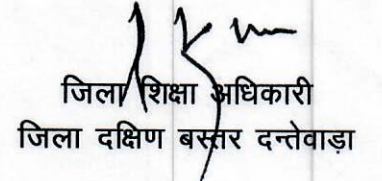 जिला शिक्षा अधिकारी
जिला दक्षिण बस्तर दन्तेवाड़ा